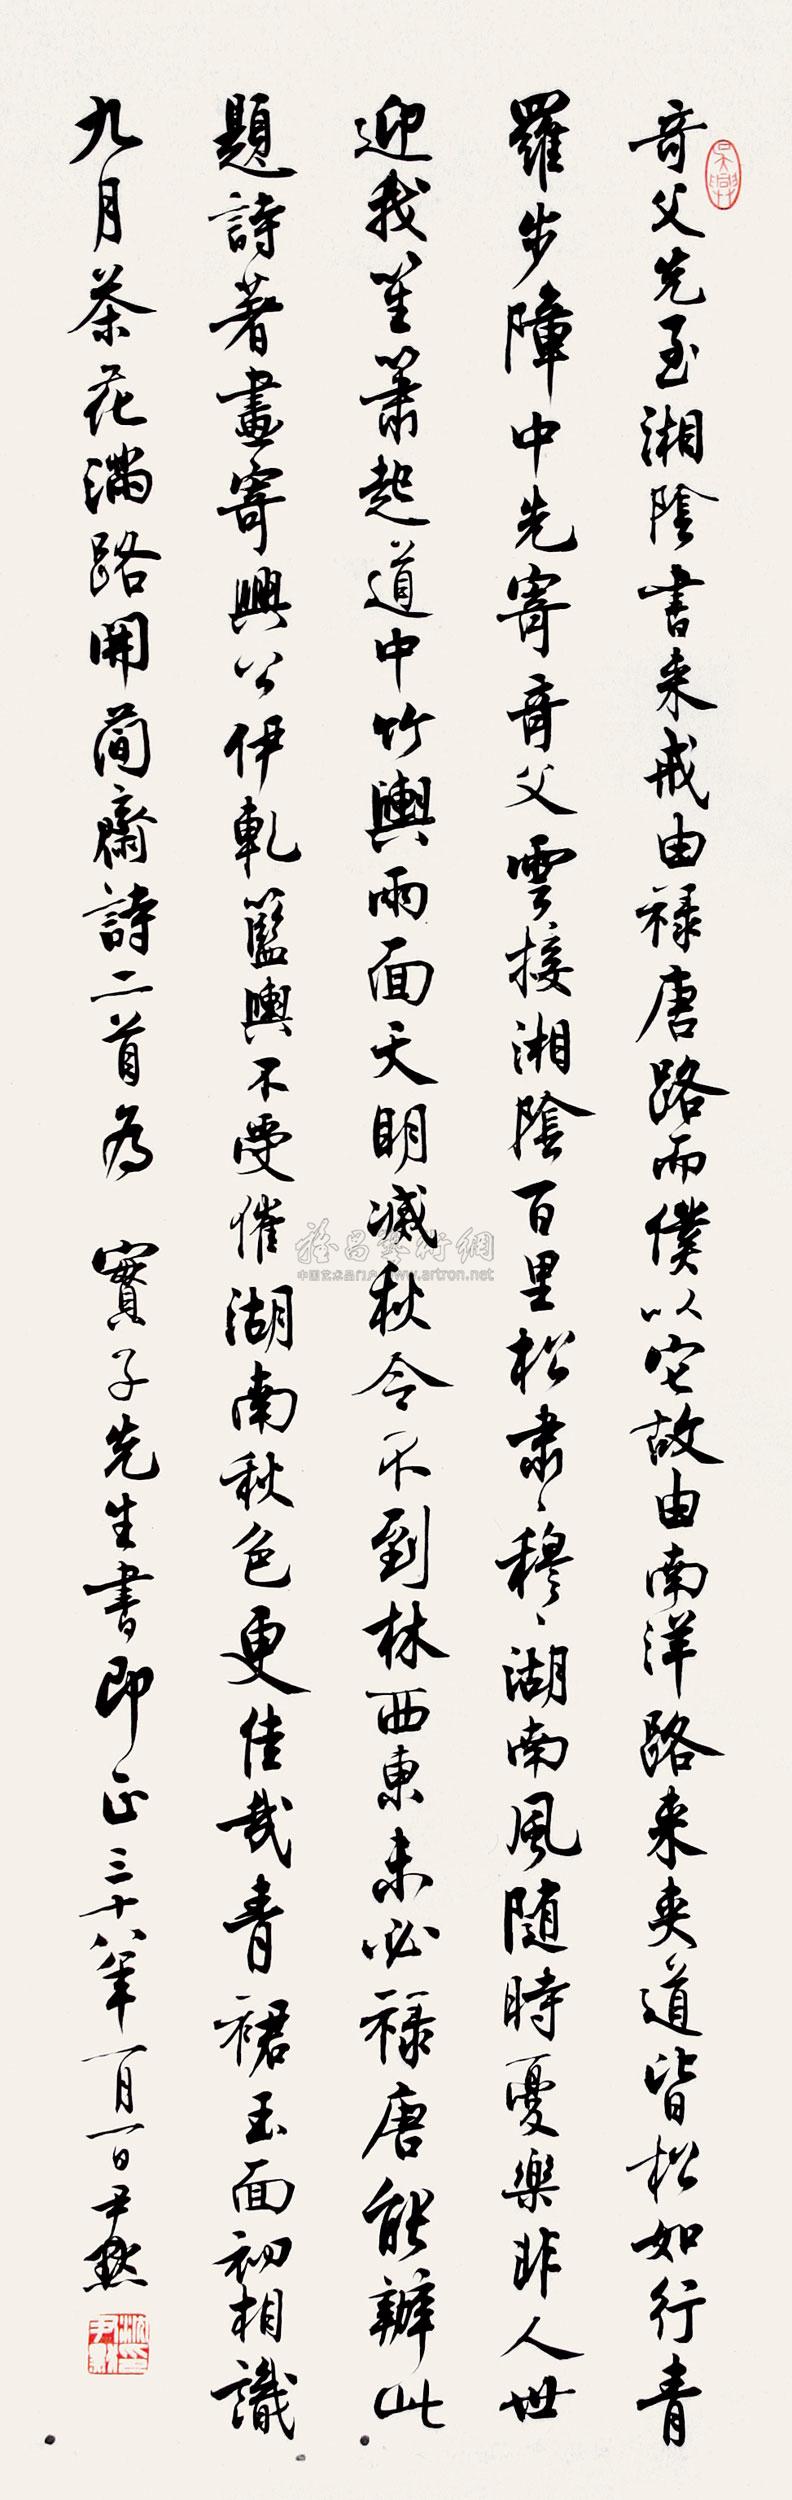 奇父先至湘陰書来戒由禄唐路而僕以它故由南洋路来夾道皆松如行青
羅步障中先寄奇父雲接湘陰百里松肅々穆々湖南風隨時憂樂非人世
迎我笙簫起道中竹輿兩面天明滅秋令不到林西東未必禄唐能辦此
題詩著畫寄興公伊軋籃輿不受催湖南秋色更佳哉青裙玉面初相識
九月茶花滿路開簡齋詩二首為 實子先生書即正三十八年一月一日尹默
雅昌藝術網
中国艺术品门户 www.artron.net